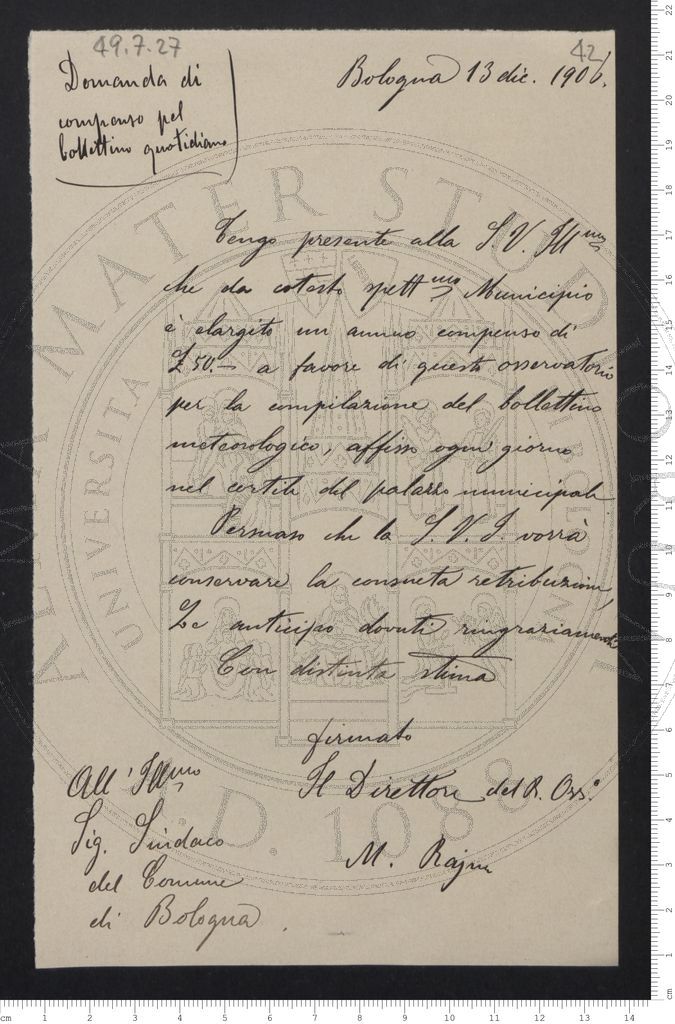 49.7.27
42
Domanda di
compenso pel
bollettino quotidiano
Bologna 13 dic. 1906.
Tengo presente alla S. V. Ill.mo
che da cotesto spett.mo Municipio
è elargito un annuo compenso di
£ 50.— a favore di questo osservatorio
per la compilazione del bollettino
meteorologico, affisso ogni giorno
nel cortile del palazzo municipale.
Persuaso che la S. V. I. vorrà
conservare la consueta retribuzione,
Le anticipo dovuti ringraziamenti
Con distinta stima
firmato
Il Direttore del R. Oss.o
M. Rajna
All' Ill.mo
Sig. Sindaco
del Comune
di Bologna.
ALMA MATER STUDIORUM
UNIVERSITA
BOLOGNA
A.D. 1088